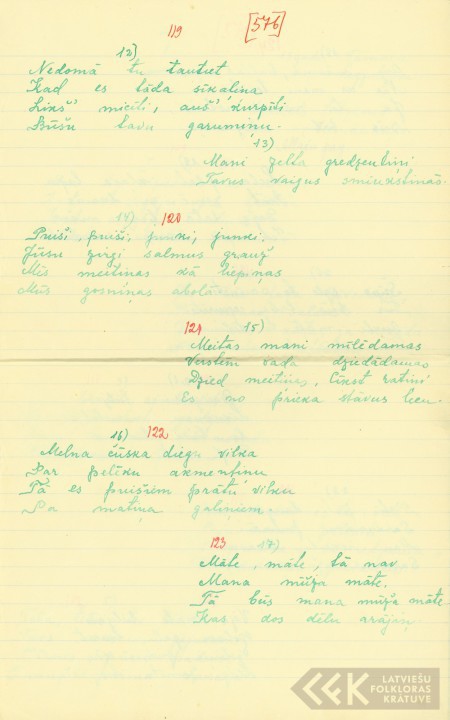 119 [576]
12)
Nedomā tu tautiet
Kad es tāda sīkaliņa
Likš' mieti, auš' kurpīti
Būšu tavu garumiņu.
13)
Mani zelta gredzentiņi
Tavus vaigus smiekstinās.
14) 120
Puiši, puiši, junki, junki.
Jūsu zirgi salmus grauž
Mēs meitiņas kā liepiņas
Mūs gosniņas abolā
121 15)
Meitas mani mīlēdamas
Verstēm vada dziedādamas
Dzied meitiņas, čīkst ratiņi
Es no prieka stāvus lecu.
16) 122
Melna čūska diegu vilka
Par pelēku akmentiņu
Tā es puišiem prātu vilku
Pa matiņa galiņiem.
123 17)
Māte, māte, tā nav
Mana mūža māte.
Tā būs mana mūža māte
Kas dos dēlu arājiņ.
LATVIEŠU
FOLKLORAS
KRĀTUVE